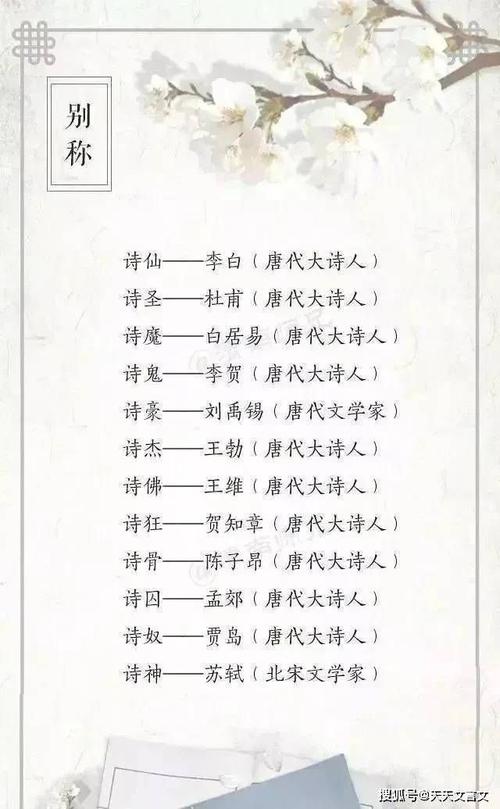 别称
诗仙——李白（唐代大诗人）
诗圣——杜甫（唐代大诗人）
诗魔——白居易（唐代大诗人）
诗鬼——李贺（唐代大诗人）
诗豪——刘禹锡（唐代文学家）
诗杰——王勃（唐代大诗人）
诗佛——王维（唐代大诗人）
诗狂——贺知章（唐代大诗人）
诗骨——陈子昂（唐代大诗人）
诗囚——孟郊（唐代大诗人）
诗奴——贾岛（唐代大诗人）
诗神——苏轼（北宋文学家）
搜狐号@天天文言文